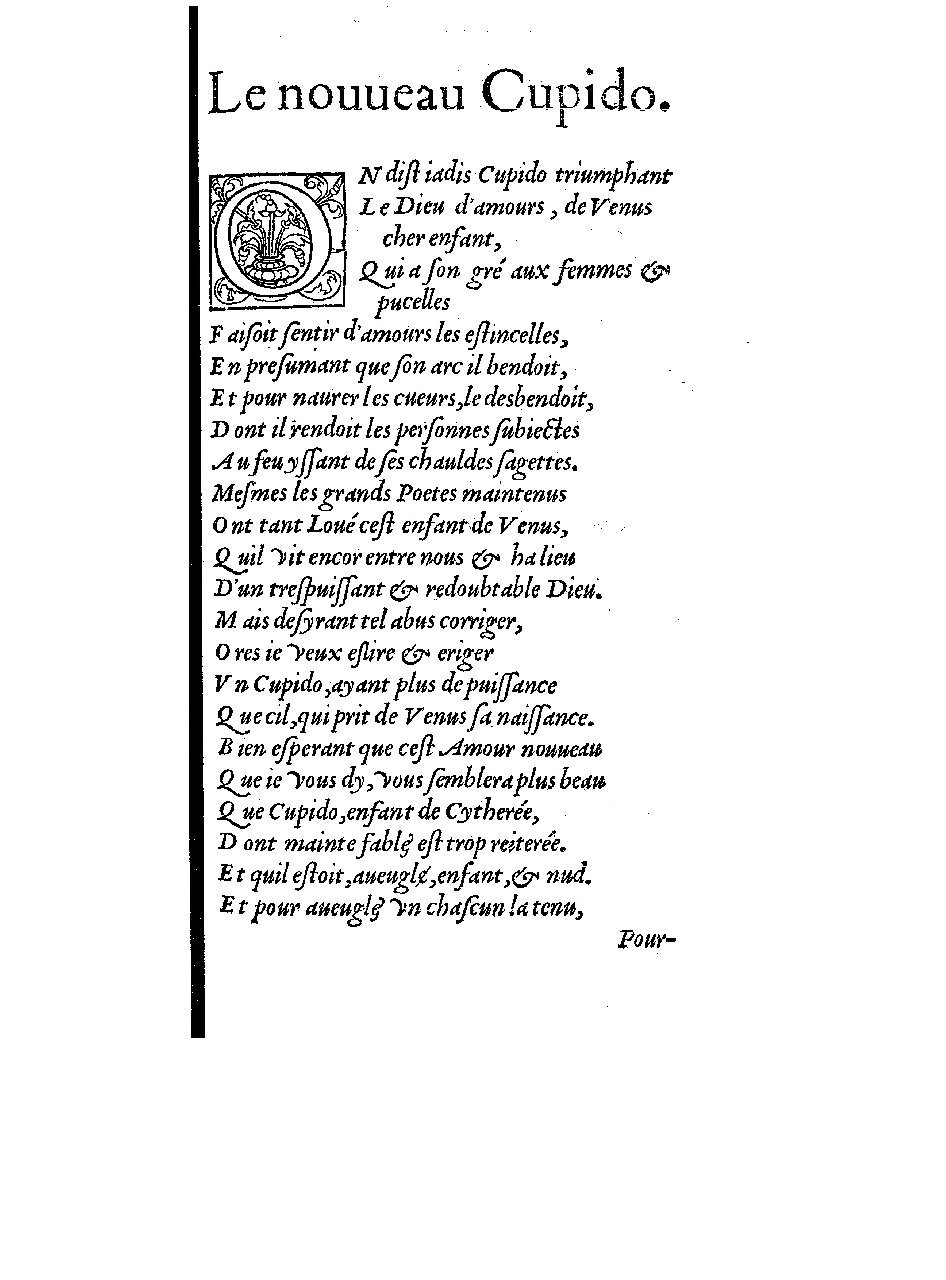 Le nouueau Cupido.
ON diſt iadis Cupido triumphant
Le Dieu d'amours, de Venus
cher enfant,
Qui a ſon gré aux femmes &
pucelles
Faiſoit ſentir d'amours les eſtincelles,
En preſumant que ſon arc il bendoit,
Et pour naurer les cueurs, le desbendoit,
Dont il rendoit les perſonnes ſubiectes
Au feu yſſant de ſes chauldes ſagettes.
Meſmes les grands Poetes maintenus
Ont tant Loué ceſt enfant de Venus,
Quil vit encor entre nous & ha lieu
D'un treſpuiſſant & redoubtable Dieu.
Mais deſyrant tel abus corriger,
Ores ie veux eſlire & eriger
Vn Cupido, ayant plus de puiſſance
Que cil, qui prit de Venus ſa naiſſance.
Bien eſperant que ceſt Amour nouueau
Que ie vous dy, vous ſemblera plus beau
Que Cupido, enfant de Cytherée,
Dont mainte fable eſt trop reiterée.
Et quil eſtoit, aueugle, enfant, & nud.
Et pour aueugle vn chaſcun la tenu,
Pour-